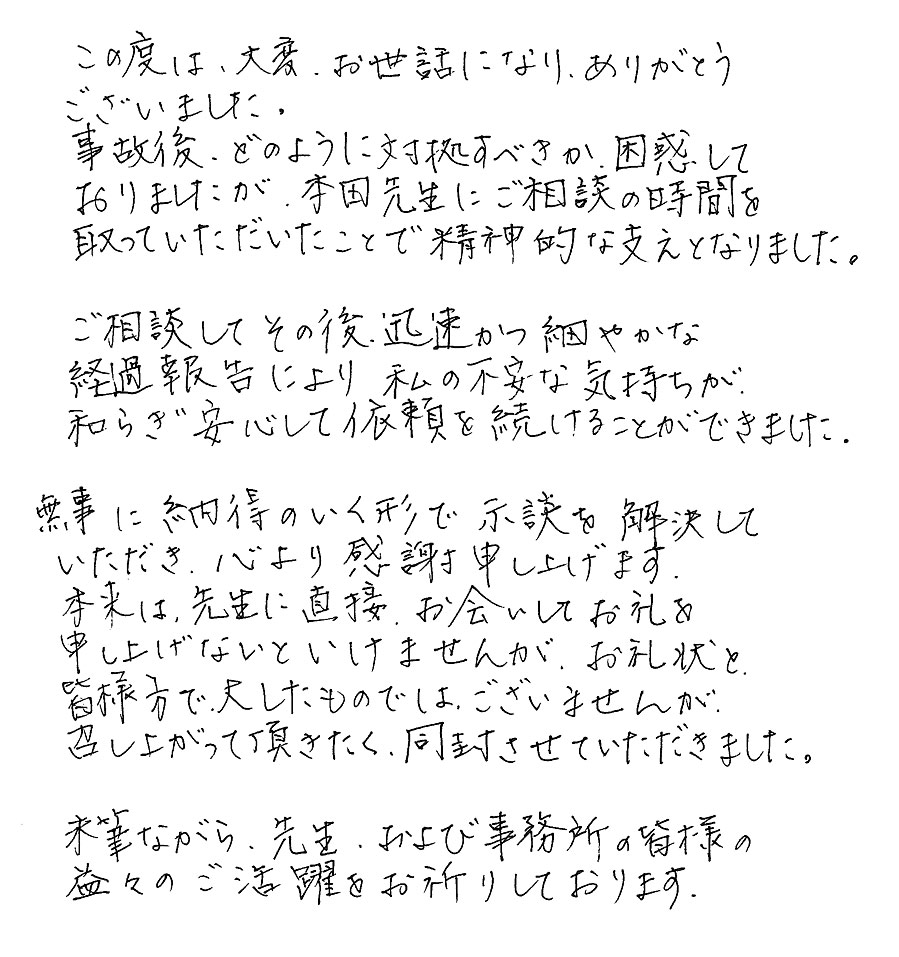 この度は、大変、お世話になり、ありがとう
ございました。
事故後、どのように対拠すべきか、困惑して
おりましたが、本田先生にご相談の時間を
取っていただいたことで精神的な支えとなりました。
ご相談してその後、迅速かつ細やかな
経過報告により私の不安な気持ちが、
和らぎ安心して依頼を続けることができました。
無事に納得のいく形で示談を解決して
いただき、心より感謝申し上げます。
本来は、先生に直接、お会いしてお礼を
申し上げないといけませんが、お礼状と、
皆様方で、大したものでは、ございませんが、
召し上がって頂きたく、同封させていただきました。
末筆ながら、先生、および事務所の皆様の
益々のご活躍をお祈りしております。